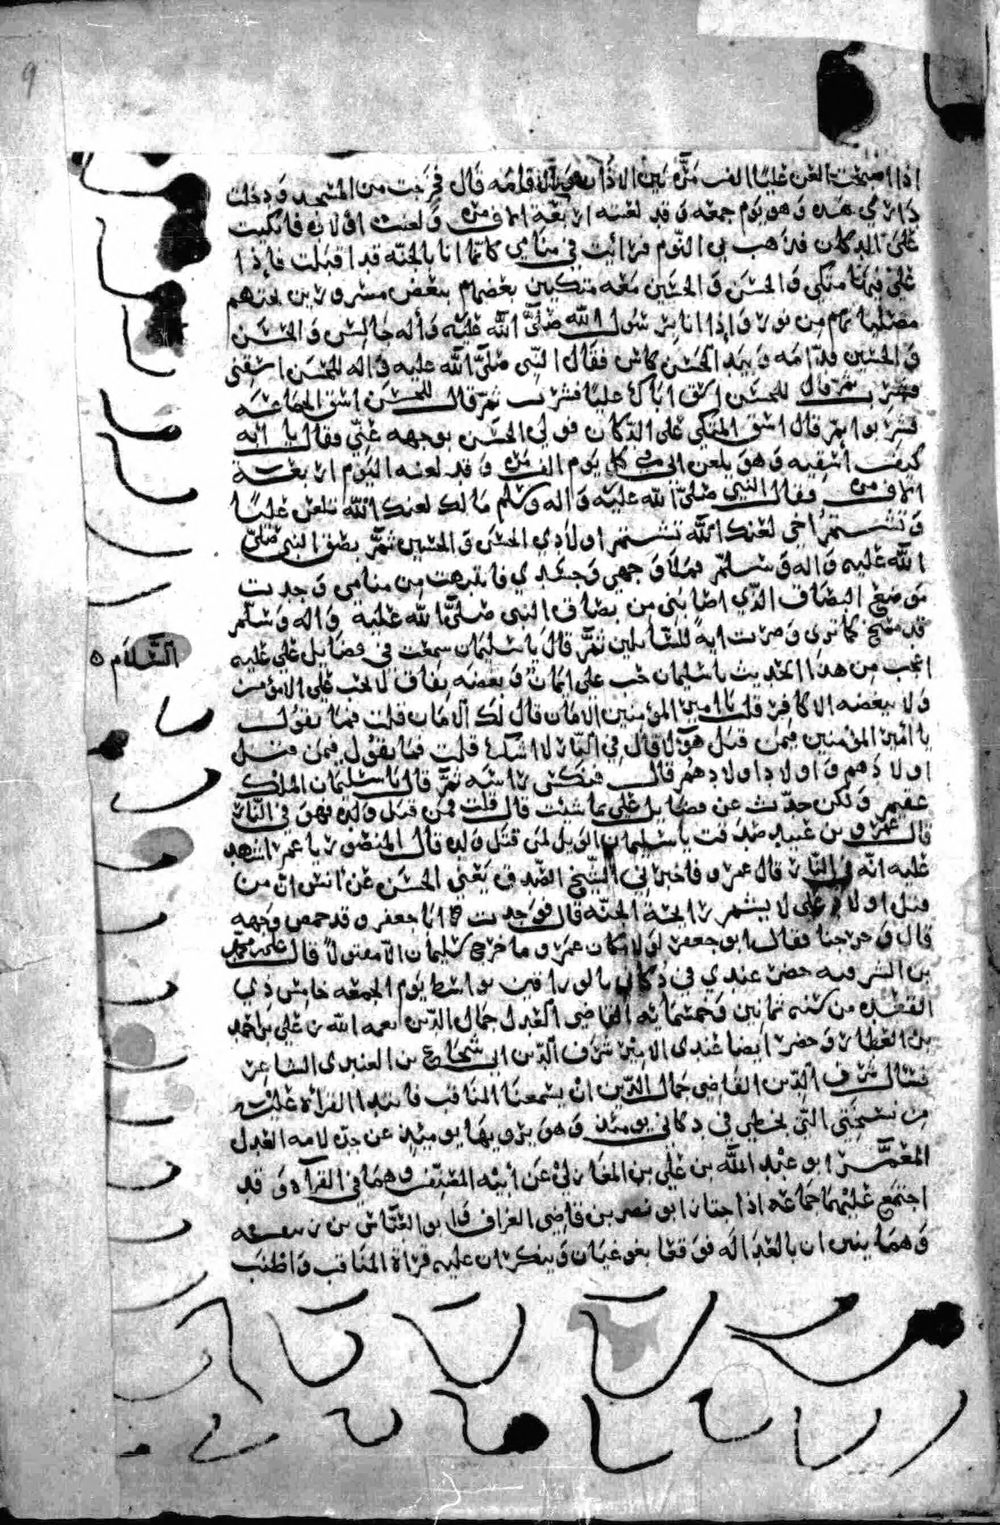 9
اذا اصبحت العن عليا الف مرة بين الاذان والاقامه قال فخرجت من المسجد ودخلت
داري هذه وهو يوم جمعه وقد لعنته اربعة الاف مره ولعنت اولاده فاتكيت
على الدكان فذهب بي النوم فرايت في منامي كانما انا بالجنه قد اقبلت فاذا
علي فيها متكي والحسن والحسين معه متكيين بعضهم ببعض مسرورين تحتهم
مصليات من نور واذا انا برسول الله صلى الله عليه واله جالس والحسن
والحسين قدامه وبيد الحسن كاس فقال النبي صلى الله عليه واله للحسن اسقني
فشرب ثم قال للحسين اسق اباك عليا فشرب ثم قال للحسن اسق الجماعه
فشربوا ثم قال اسق المتكي على الدكان فولى الحسن بوجهه عني وقال يا ابه
كيف اسقيه وهو يلعن ابي في كل يوم الف مره وقد لعنه اليوم اربعة
الاف مره فقال النبي صلى الله عليه واله وسلم مالك لعنك الله تلعن عليا
وتشتم اخي لعنك الله تشتم اولادي الحسن والحسين ثم بصق النبي صلى
الله عليه واله وسلم فملا وجهي وجسدي فانتبهت من منامي وجدت
موضع البصاق الذي اصابني من بصاق النبي صلى الله عليه واله وسلم
قد مسخ كما ترى وصرت اية للسايلين ثم قال يا سليمان سمعت في فضايل علي عليه
السلام ه
اعجب من هذا الحديث يا سليمان حب علي ايمان وبغضه نفاق لا يحب عليا الا مؤمن
ولا يبغضه الا كافر قلت يا امير المؤمنين الامان قال لك الامان قلت فما تقول
يا امير المؤمنين فيمن قتل هولا قال في النار لا اشك قلت فما تقول فيمن قتل
اولادهم واولاد اولادهم قال فنكس راسه ثم قال يا سليمان الملك
عقيم ولكن حدث عن فضايل علي ما شئت قال قلت فمن قتل ولده فهو في النار
قال عمرو بن عبيد صدقت يا سليمان الويل لمن قتل ولده قال المنصور يا عمر اشهد
عليه انه في النار قال عمرو فاخبرني الشيخ الصدق يعني الحسن عن انس ان من
قتل اولاد علي لا يشم رايحة الجنه قال فوجدت ابا جعفر وقد حمص وجهه
قال وخرجنا فقال ابو جعفر لولا مكان عمرو ما خرج سليمان الا مقتولا قال علي بن محمد
بن الشرفيه حضر عندي في دكاني بالوراقين بواسط يوم الجمعه خامس ذي
القعده من سنة ثمانين وخمسمايه القاضي العدل جمال الدين نعمه الله بن علي بن احمد
بن العطار وحضر ايضا عندي الامير شرف الدين ابي شجاع بن العنبري الشاعر
فسال شرف الدين القاضي جمال الدين ان يسمعنا المناقب فابتدا القراة عليه
من نسختي التي بخطي في دكاني يومئذ وهو يرويها يومئذ عن جده لامه العدل
المعمر ابو عبد الله بن علي بن المغازلي عن ابيه المصنف وهما في القراة وقد
اجتمع عليهما جماعه اذ اجتاز ابو نصر بن قاضي العراق وابو العباس بن
وهما ينبزان بالعداله فوقفا يغوغيان وينكران عليه قراة المناقب واطنب